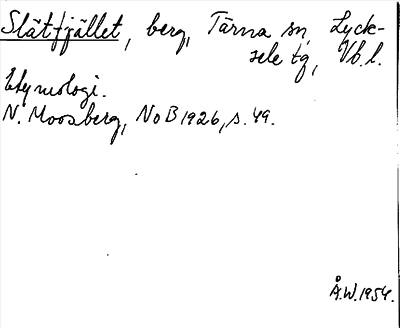 Slätfjället, berg, Tärna sn, Lyck-
sele tg, Vb. l.
Etymologi.
N. Moosberg, NoB 1926, s. 49.
Å.W. 1954.